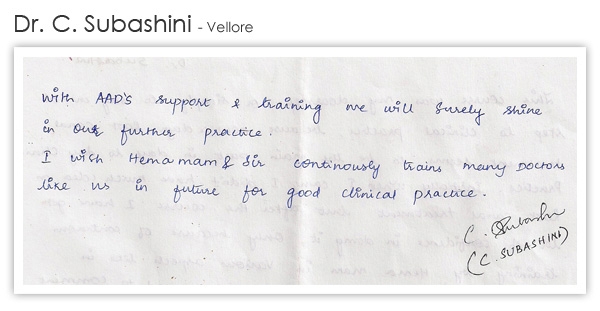 Dr. C. Subashini - Vellore
With AAD's support & training we will surely shine
in our further practice.
I wish Hema mam & Sir continously trains many Doctors
like us in future for good clinical practice.
C. Subashini
(C. SUBASHINI)